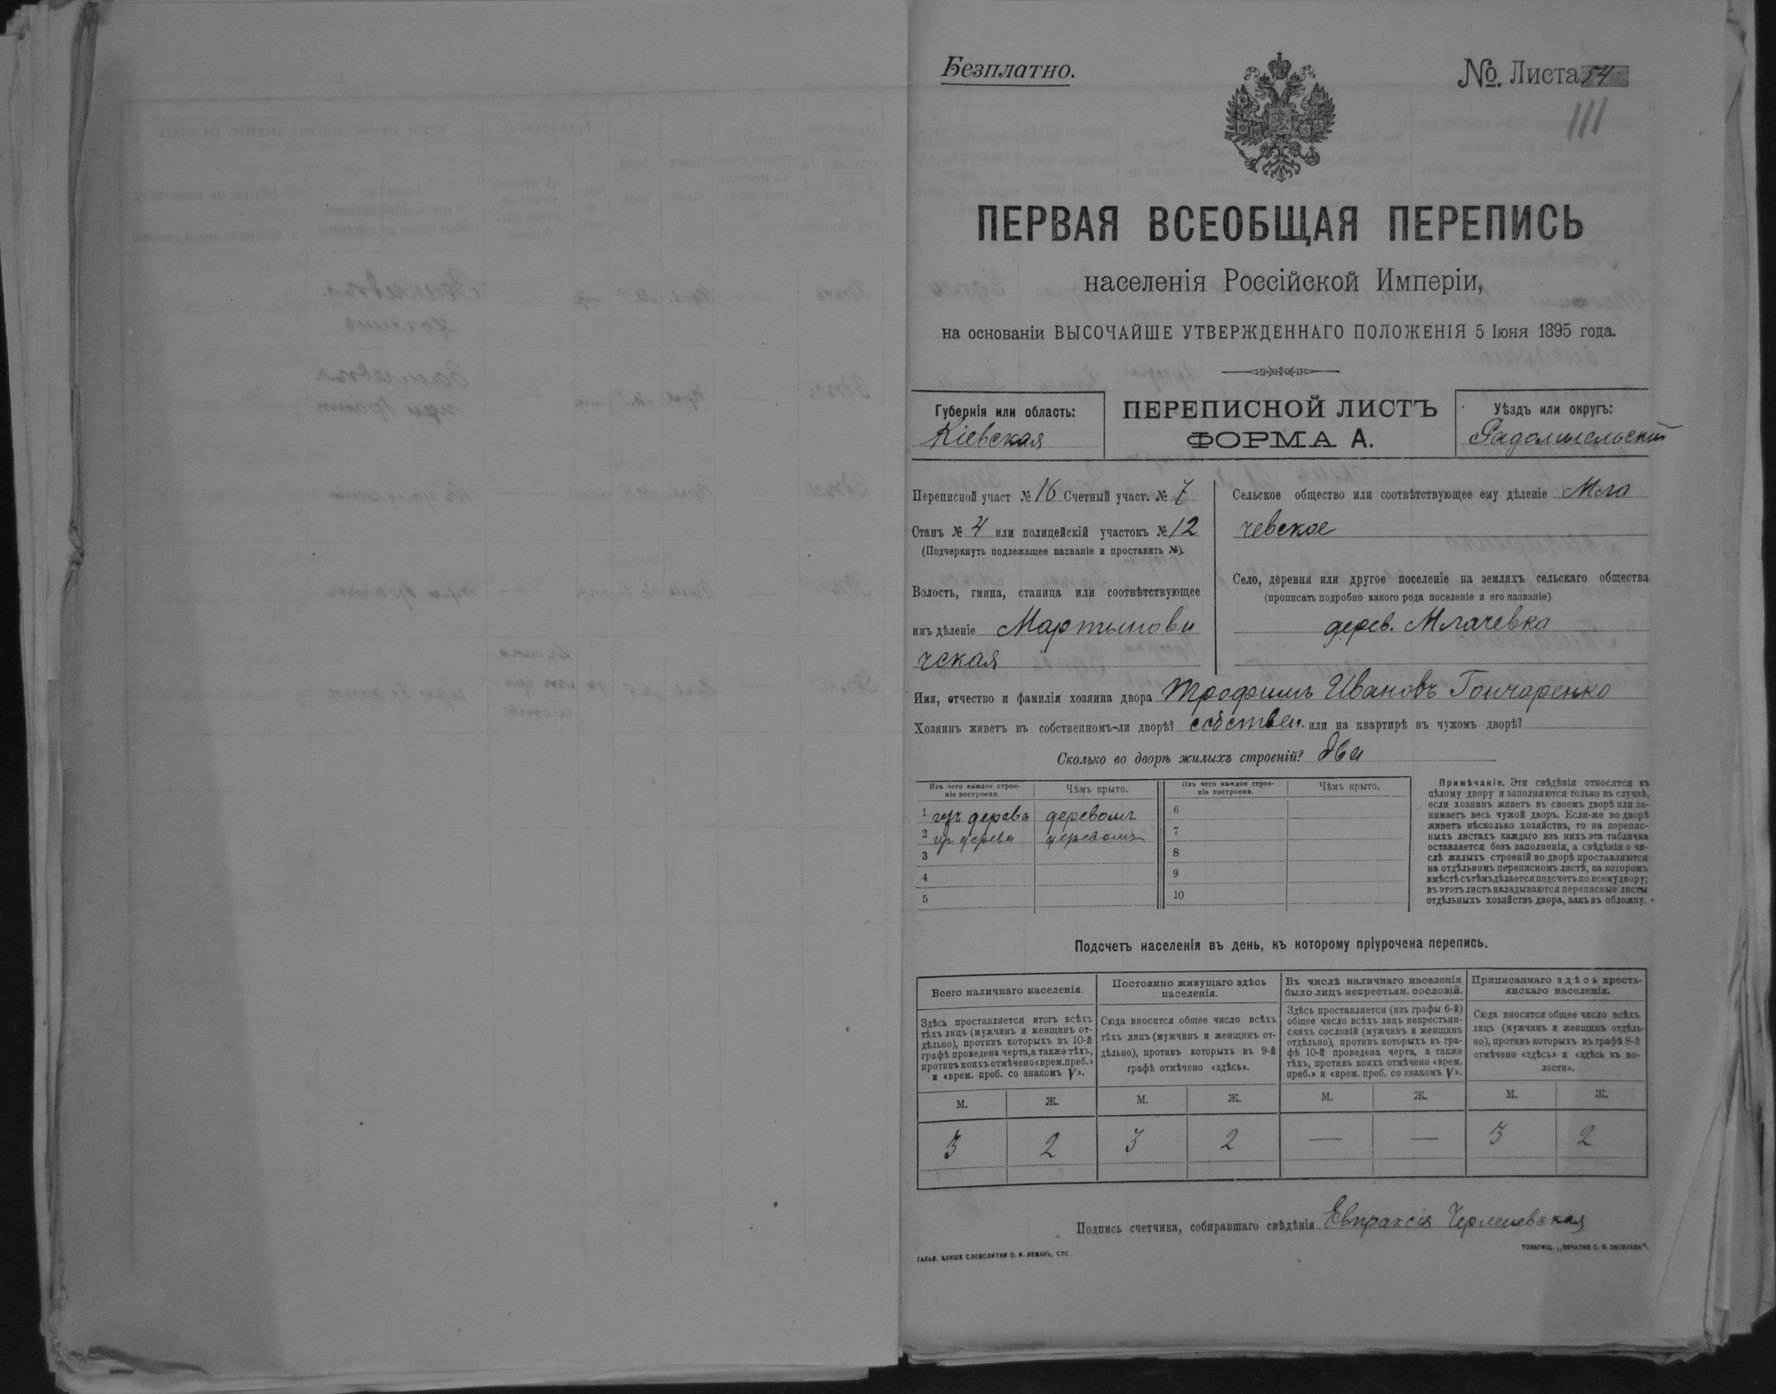 Безплатно.
№. Листа 54
111
ПЕРВАЯ ВСЕОБЩАЯ ПЕРЕПИСЬ
населенія Россійской Имперіи,
на основаніи ВЫСОЧАЙШЕ УТВЕРЖДЕННАГО ПОЛОЖЕНІЯ 5 Іюня 1895 года.
Губернія или область:
Кіевская
ПЕРЕПИСНОЙ ЛИСТЪ
ФОРМА А.
Уѣздъ или округъ:
Радомысльскій
Переписной участ № 16 Счетный участ. № 7
Станъ № 4 или полицейскій участокъ № 12
(Подчеркнуть подлежащее названіе и проставить №).
Волость, гмина, станица или соотвѣтствующее
имъ дѣленіе Мартынови
чская
Сельское общество или соотвѣтствующее ему дѣленіе Мла
чевское
Село, деревня или другое поселеніе на земляхъ сельскаго общества
(прописать подробно какого рода поселеніе и его названіе)
дерев. Млачевка
Имя, отчество и фамилія хозяина двора Трофимъ Ивановъ Гончаренко
Хозяинъ живетъ въ собственномъ-ли дворѣ? собствен. или на квартирѣ въ чужомъ дворѣ?
Сколько во дворѣ жилыхъ строеній? два
Изъ чего каждое строе-
ніе построено.
Чѣмъ крыто.
Изъ чего каждое строе-
ніе построено.
Чѣмъ крыто.
1 изъ дерева деревомъ 6
2 из дерева деревомъ 7
3 8
4 9
5 10
Примѣчаніе. Эти свѣдѣнія относятся къ
цѣлому двору и заполняются только въ случаѣ,
если хозяинъ живетъ въ своемъ дворѣ или за-
нимаетъ весь чужой дворъ. Если-же во дворѣ
живетъ нѣсколько хозяйствъ, то на перепис-
ныхъ листахъ каждаго изъ нихъ эта табличка
оставляется безъ заполненія, а свѣдѣнія о чи-
слѣ жилыхъ строеній во дворѣ проставляются
на отдѣльномъ переписномъ листѣ, на которомъ
вмѣстѣ съ тѣмъ дѣлается подсчетъ по всему двору;
въ этотъ листъ вкладываются переписные листы
отдѣльныхъ хозяйствъ двора, какъ въ обложку.
Подсчетъ населенія въ день, къ которому пріурочена перепись.
Всего наличнаго населенія.
Здѣсь проставляется итогъ всѣхъ
тѣхъ лицъ (мужчинъ и женщинъ от-
дѣльно), противъ которыхъ въ 10-й
графѣ проведена черта, а также тѣхъ,
противъ коихъ отмѣчено «врем. преб.»
и «врем. преб. со знакомъ V».
Постоянно живущаго здѣсь
населенія.
Сюда вносится общее число всѣхъ
тѣхъ лицъ (мужчинъ и женщинъ от-
дѣльно), противъ которыхъ въ 9-й
графѣ отмѣчено «здѣсь».
Въ числѣ наличнаго населенія
было лицъ некрестьян. сословій.
Здѣсь проставляется (изъ графы 6-й)
общее число всѣхъ лицъ некрестьян-
скихъ сословій (мужчинъ и женщинъ
отдѣльно), противъ которыхъ въ гра-
фѣ 10-й проведена черта, а также
тѣхъ, противъ коихъ отмѣчено «врем.
преб.» и «врем. преб. со знакомъ V».
Приписаннаго здѣсь кресть-
янскаго населенія.
Сюда вносится общее число всѣхъ
лицъ (мужчинъ и женщинъ отдѣль-
но), противъ которыхъ въ графѣ 8-й
отмѣчено «здѣсь» и «здѣсь въ во-
лости».
М. Ж. М. Ж. М. Ж. М. Ж.
3 2 3 2 — — 3 2
Подпись счетчика, собиравшаго свѣдѣнія Евпраксія
ГАЛЬВ. КЛИШЕ СЛОВОЛИТНИ О. И. ЛЕМАНЪ, СПБ
ТОВАРИЩ. „ПЕЧАТНЯ С. П. ЯКОВЛЕВА".